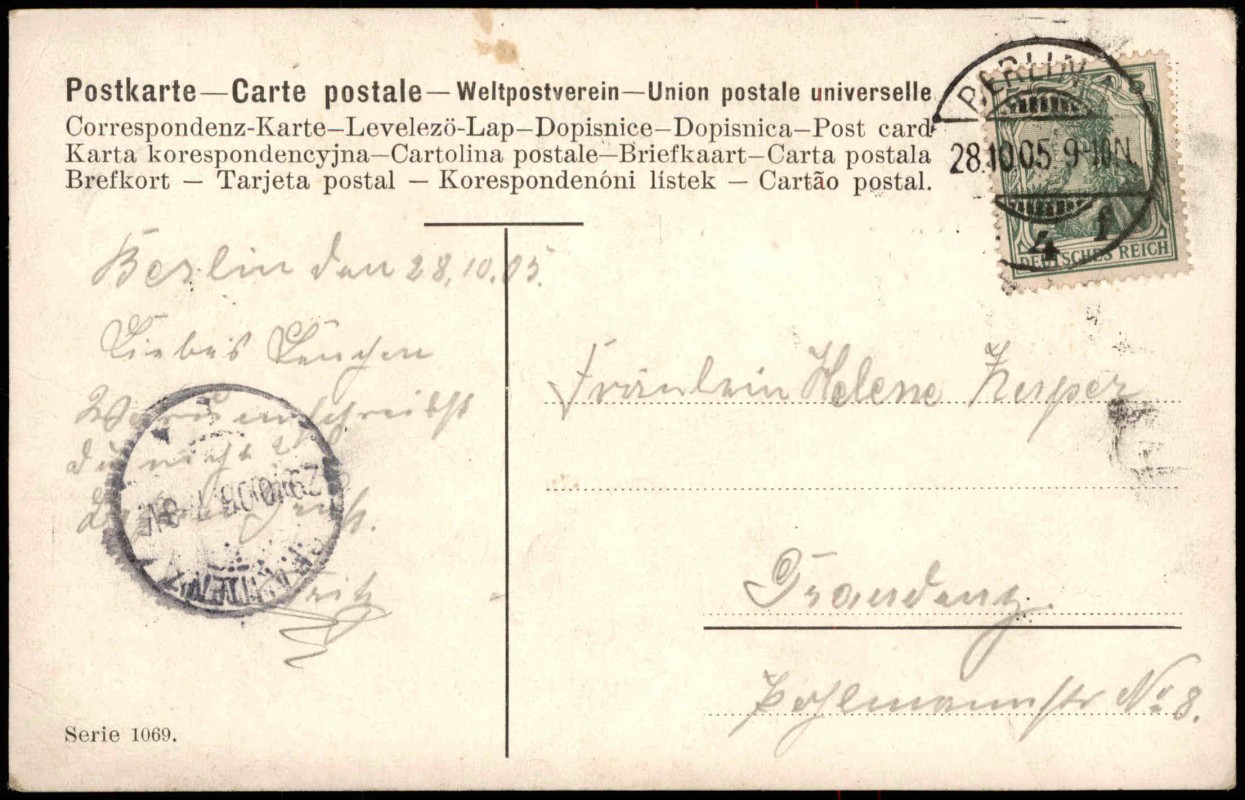 Postkarte—Carte postale—Weltpostverein—Union postale universelle
Correspondenz-Karte—Levelezö-Lap—Dopisnice—Dopisnica—Post card
Karta korespondencyjna—Cartolina postale—Briefkaart—Carta postala
Brefkort — Tarjeta postal — Korespondenóni lístek — Cartão postal.
BERLIN
28.10.05 9-10N.
4 f
DEUTSCHES REICH
Berlin den 28.10.05.
Liebes Lenchen
Warum schreibst
du nicht?
Fritz
29.10.05 7-8N
GRAUDENZ
Fräulein Helene
Graudenz.
Pohlmannstr No 8.
Serie 1069.